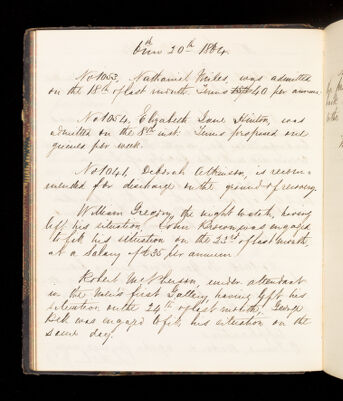 20th 1864.
No 1053, Nathaniel Mikes, was admitted
on the 18th of last month Terms £40 per annum
No 1054, Elizabeth Jane Hinton, was
admitted on the 8th inst. Terms proposed one
guinea per week.
No 1041 Deborah Atkinson, is recom-
mended for discharge on the ground of recovery.
William Gregory, the night watch, having
left his situation, John was engaged
to fill his situation on the 23rd of last month
at a salary of £35 per annum.
Robert McPherson, under attendant
in the Men's first Gallery, having left his
situation on the 24th of last month, George
Beck was engaged to fill his situation on the
same day.